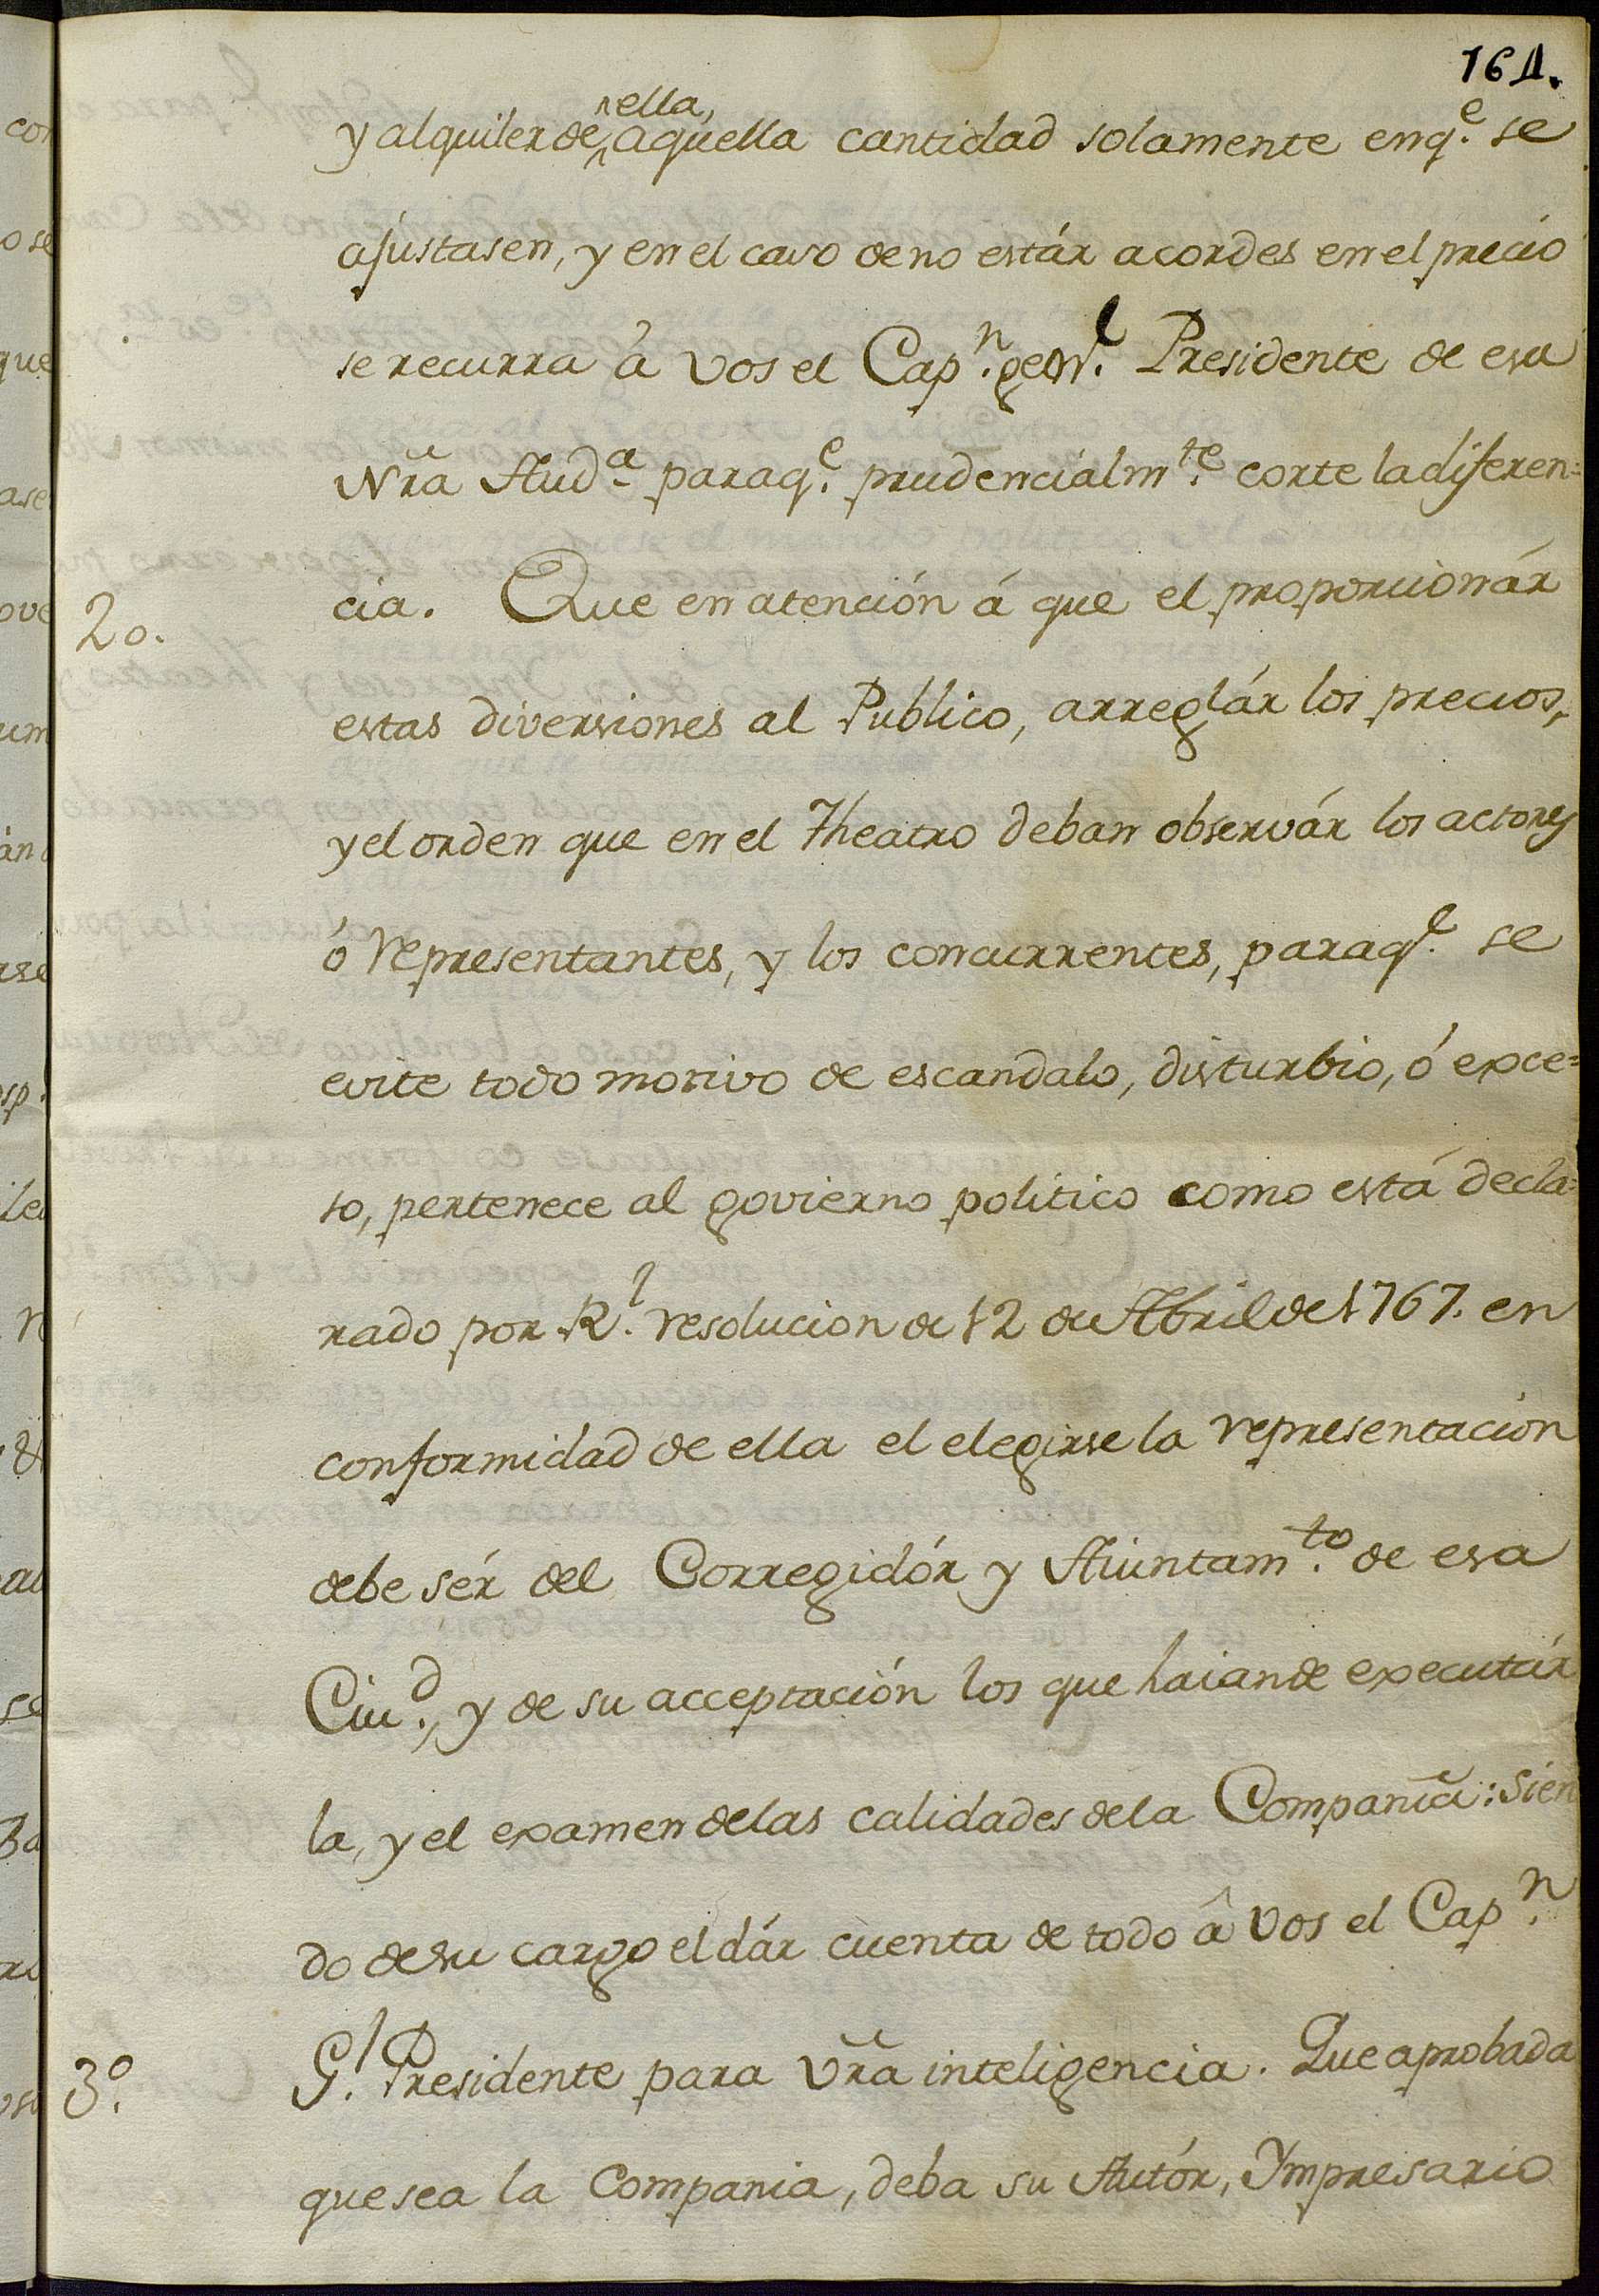 164.
y alquiler de ella, aquella cantidad solamente en q.e se
ajustasen, y en el caso de no estár acordes en el precio
se recurra â vos el Cap.n gen.l Presidente de esa
Nr̃a Aud.a para q.e prudencialm.te corte la diferen=
2o.
cia. Que en atención á que el proporcionár
estas diversiones al Publico, arreglár los precios,
y el orden que en el Theatro deban observár los actores
ó representantes, y los concurrentes, para q.e se
evite todo motivo de escandalo, disturbio, ó exce=
so, pertenece al govierno politico como está decla=
rado por R.l resolucion de 12 de Abril de 1767. en
conformidad de ella el elegirse la representacion
debe sér del Corregidór y Aiuntam.to de esa
Ciu.d, y de su acceptación los que haian de executár
la, y el examen de las calidades de la Compañia: sien
do de su cargo el dár cuenta de todo â vos el Cap.n
3o.
G.l Presidente para vr̃a inteligencia. Que aprobada
que sea la Compania, deba su Autór, Ympresario